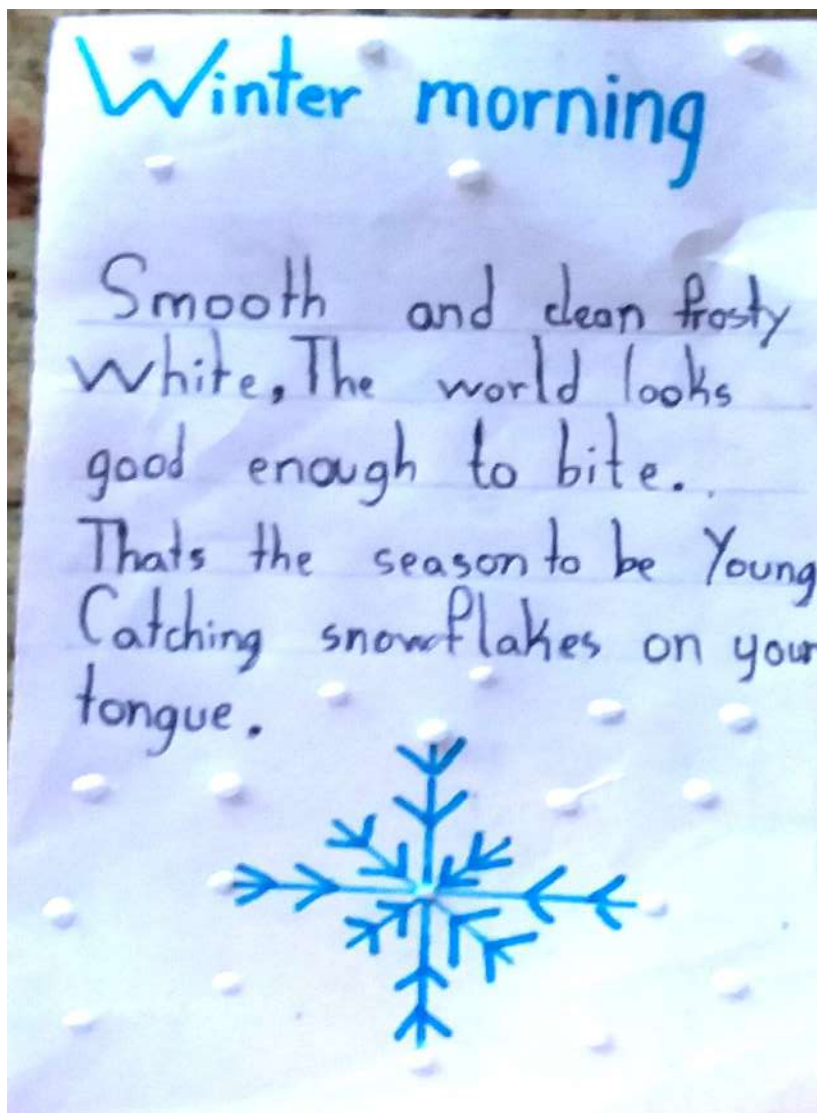 Winter morning
Smooth and clean frosty
White, The world looks
good enough to bite.
Thats the season to be Young
Catching snowflakes on your
tongue.